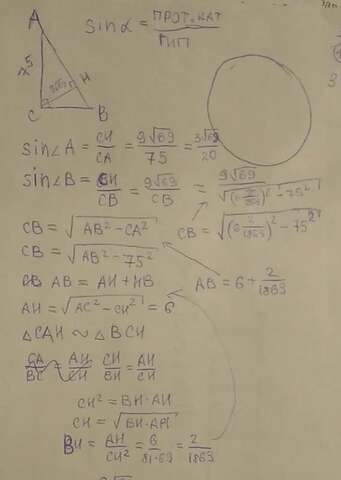 A
sin α = ПРОТ. КАТ / ГИП
75
9√69
H
C
B
sin∠A = CH/CA = 9√69/75 = 3√69/20
sin∠B = CH/CB = 9√69/CB = 9√69/√((6 2/1869)² - 75²)
CB = √(AB² - CA²)
CB = √(AB² - 75²)
CB = √((6 2/1869)² - 75²)
AB = AH + HB
AB = 6 + 2/1869
AH = √(AC² - CH²) = 6
△CAH ∾ △BCH
CA/BC = AH/CH CH/BH = AH/CH
CH² = BH·AH
CH = √(BH·AH)
BH = AH/CH² = 6/81·69 = 2/1869